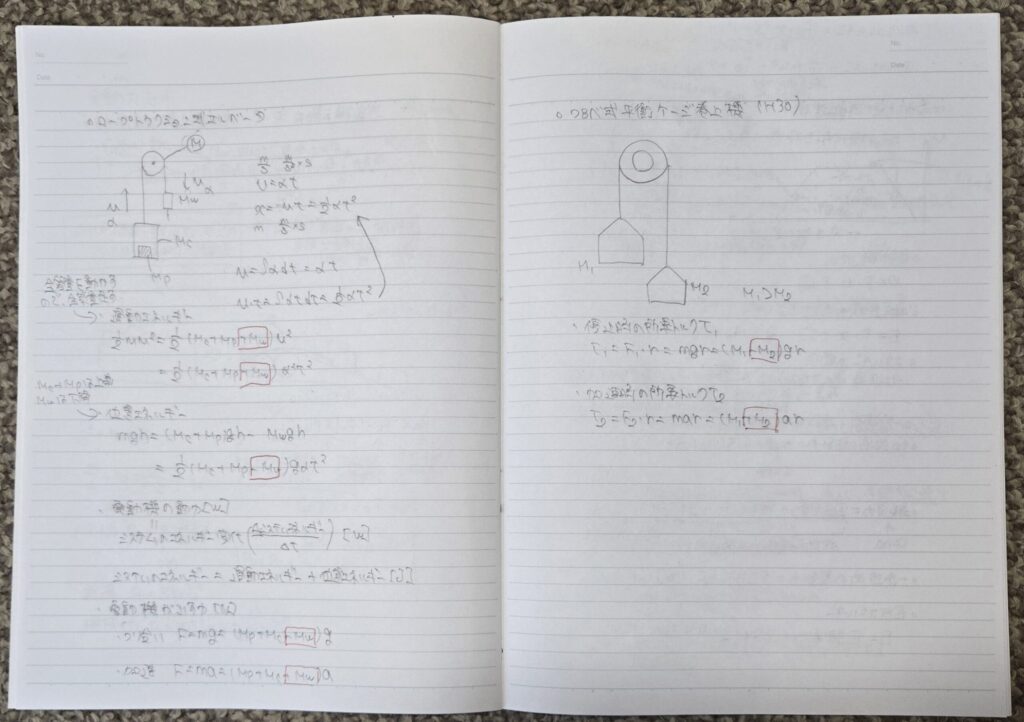 No.
Date
。ロープトラクション式エレベータ
M
m/s m/s²×s
v=αt
v
α
Mw
x=vt=½αt²
m m/s×s
v
α
Mc
Mp
v=∫αdt=αt
v・t=∫αtdt=½αt²
全質量を動かす
ので、全質量足す
→・運動エネルギー
½mv²=½(Mc+Mp+Mw)v²
=½(Mc+Mp+Mw)α²t²
Mc+Mpは上昇
Mwは下降
→・位置エネルギー
mgh=(Mc+Mp)gh-Mwgh
=½(Mc+Mp-Mw)gαt²
・電動機の動力[W]
=
システムのエネルギー変化(Δシステムエネルギー/Δt)[W]
システムのエネルギー=運動エネルギー+位置エネルギー[J]
・電動機が出す力[N]
F=mg=(Mp+Mc-Mw)g
・加速 F=ma=(Mp+Mc+Mw)a
No.
Date
。つるべ式平衡ケージ巻上機 (H30)
M₁
M₂
M₁>M₂
・停止時の所要トルクT₁
T₁=F₁・r=mgr=(M₁-M₂)gr
・加速時の所要トルクT₂
T₂=F₂・r=mar=(M₁+M₂)ar